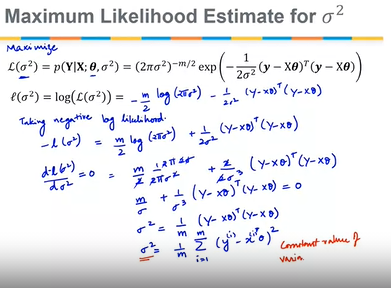 Maximum Likelihood Estimate for σ²
Maximize
ℒ(σ²) = p(Y|X; θ, σ²) = (2πσ²)^{-m/2} exp(-1/(2σ²) (y - Xθ)^T (y - Xθ))
ℓ(σ²) = log(ℒ(σ²)) = -m/2 log(2πσ²) - 1/(2σ²) (y-Xθ)^T (y-Xθ)
Taking negative log likelihood.
-l(σ²) = m/2 log(2πσ²) + 1/(2σ²) (y-Xθ)^T (y-Xθ)
d-l(σ²)/dσ² = 0 = m/2 + 2/σ³ (y-Xθ)^T (y-Xθ)
m/σ + 1/σ³ (y-Xθ)^T (y-Xθ) = 0
σ² = 1/m (y-Xθ)^T (y-Xθ)
σ² = 1/m Σ_{i=1}^{m} (y^{(i)} - x^{(i)T}θ)²
Constant value of
varian